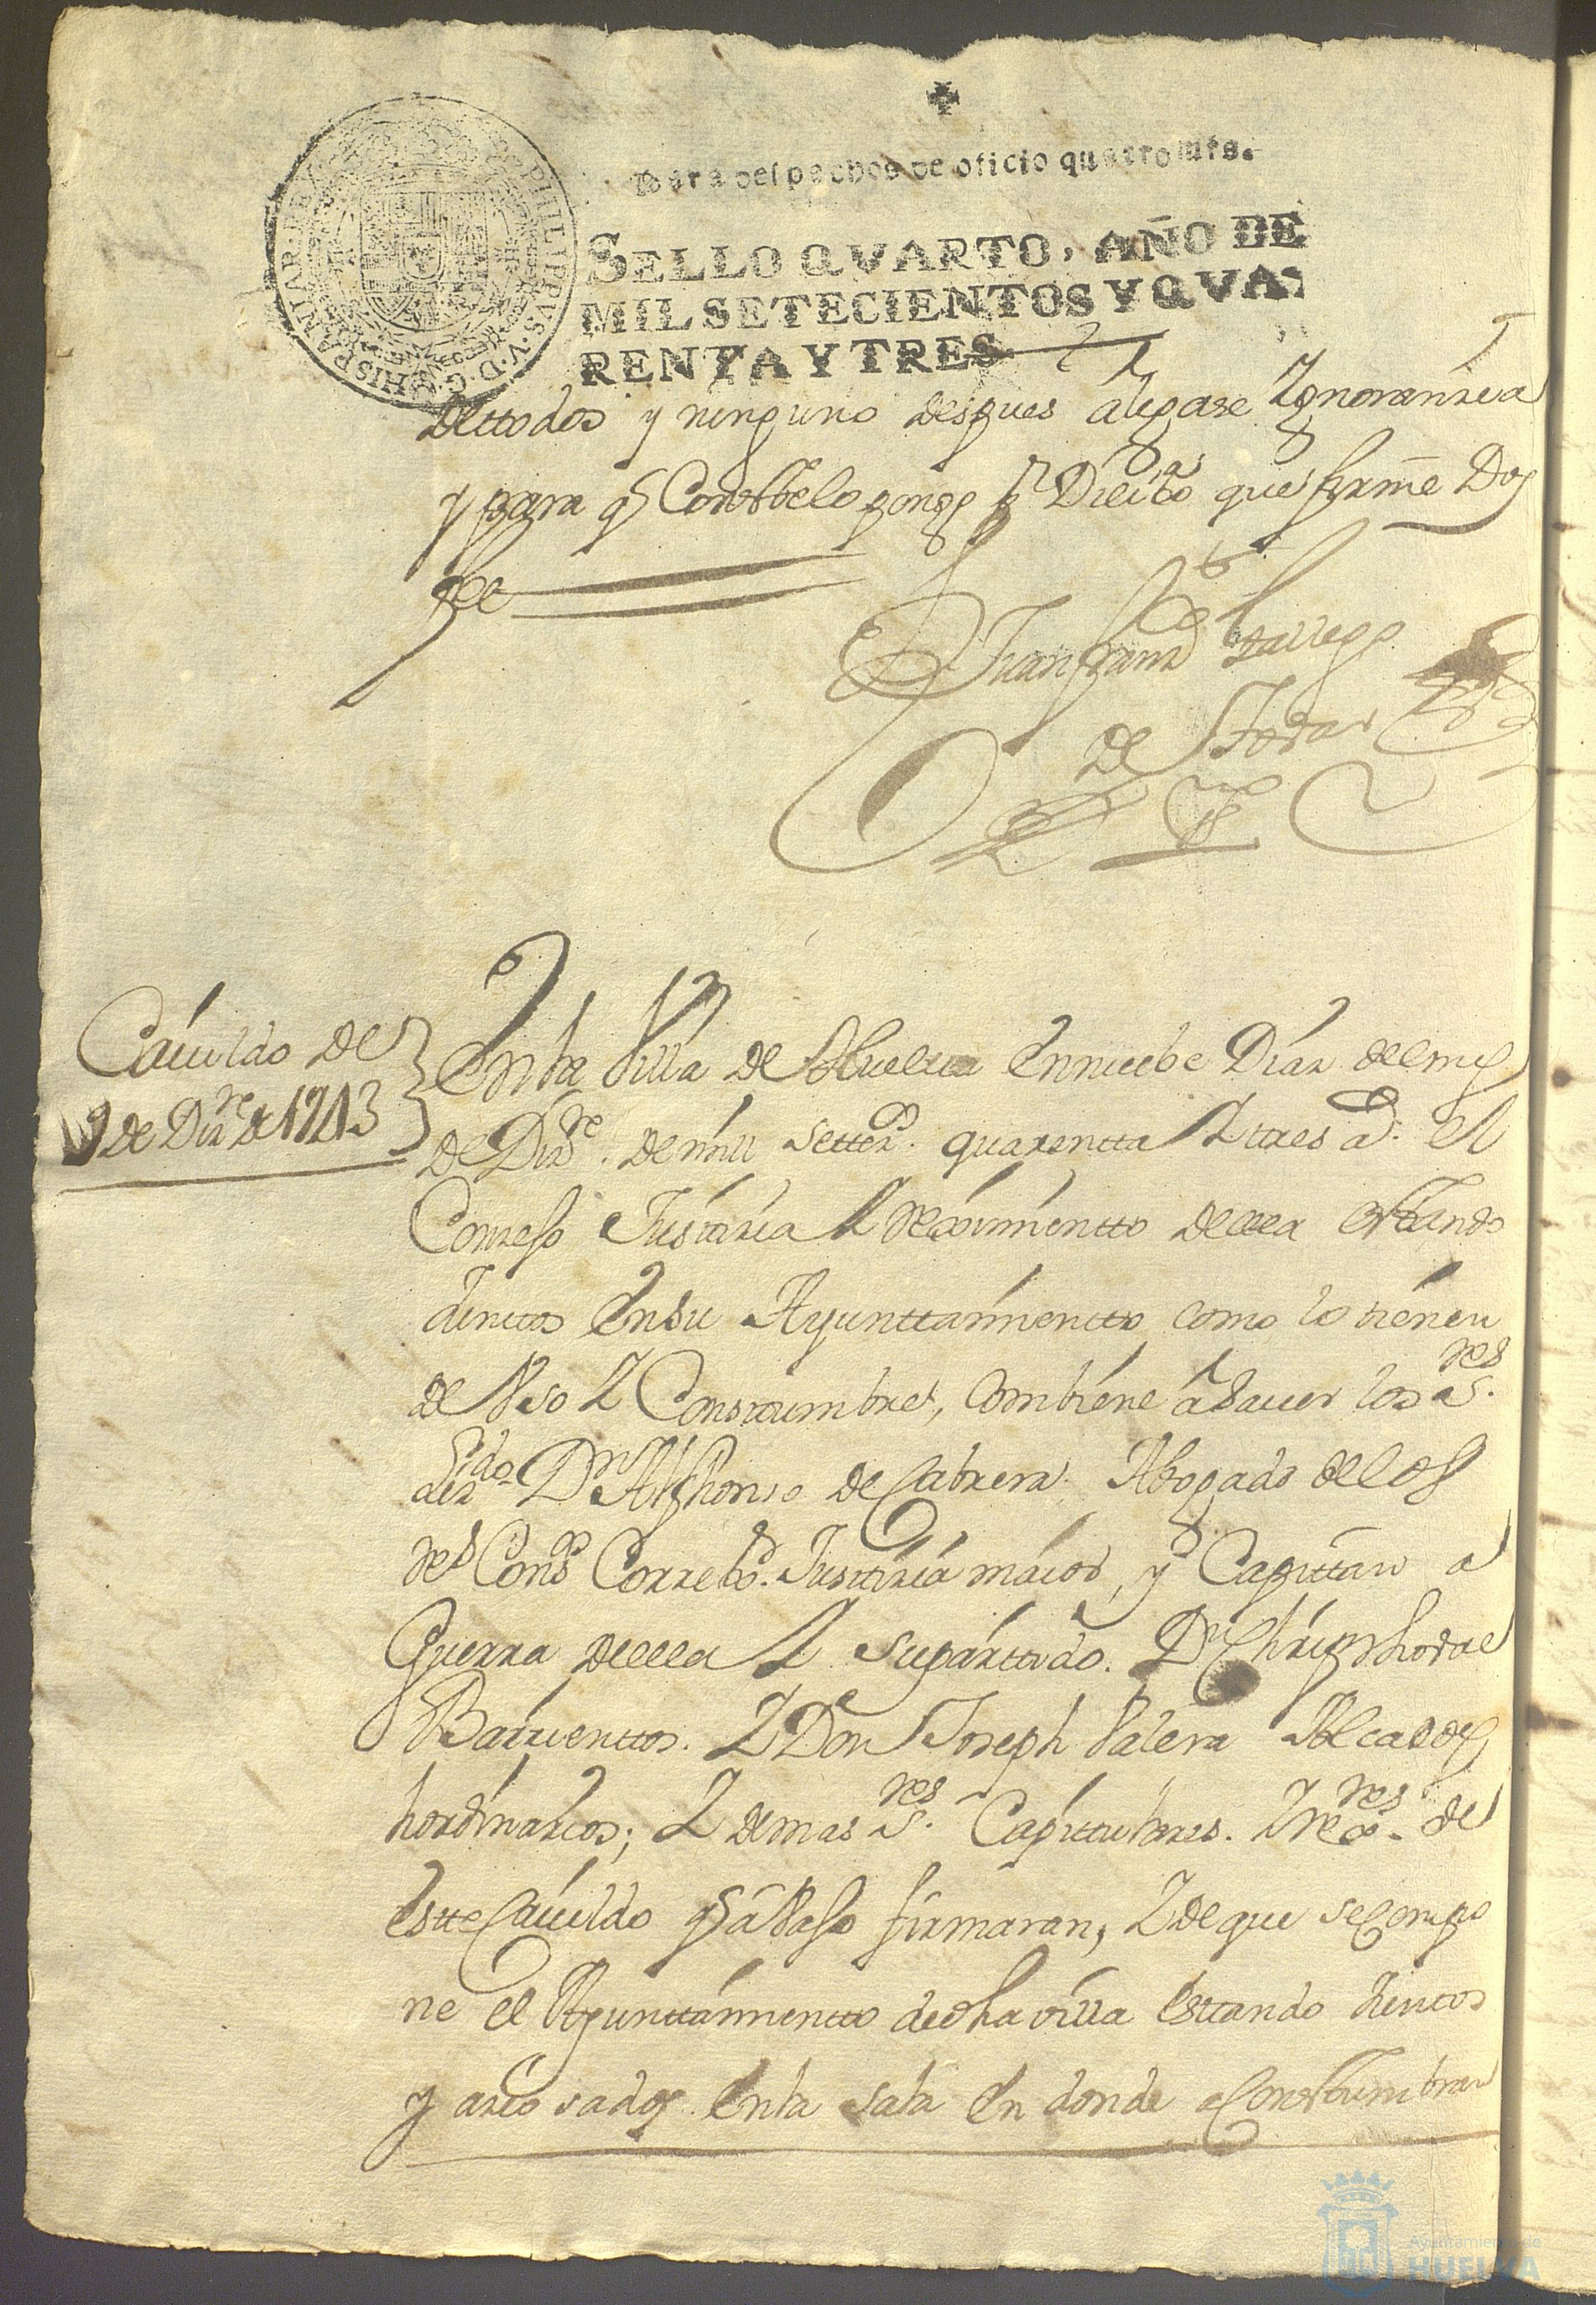 Para despachos de oficio quatro mrs.
SELLO QVARTO, AÑO DE
MIL SETECIENTOS Y QVA-
RENTA Y TRES
PHILIPPVS. V. D. G. HISPANIAR. REX
dettodos y ninguno despues alegase Ygnoranzia
y para q Constte lo pongo pr Dilixa que firme Doy
fee
Juan
Gallego
de
Cauildo de
9 de Dizre de 1743
En la Villa de Huelua en nuebe Dias del mes
de Dizre. de mill settezos. quarentta Y tres as. el
Conzejo Justizia Y Reximientto de ella esttando
Juntos en su Ayunttamientto como lo tienen
de Vso Y Costtumbre, Combiene â sauer los Sres.
Lizdo. Dn Alphonso de Cabrera Abogado de los
Rs Consos Correxor. Justizia maior, y Capittan a
Guerra de ella Y su parttido. Dn Christhoval
Barrienttos. Y Don Joseph Valera Alcaldes
hordinarios; Y demas Sres. Capittulares. de
estte Cauildo q â Vajo firmaran, Y de que se Compo
ne el Ayunttamientto de dha villa esttando Junttos
y en la sala en donde aCosttumbran
Ayuntamiento de
HUELVA